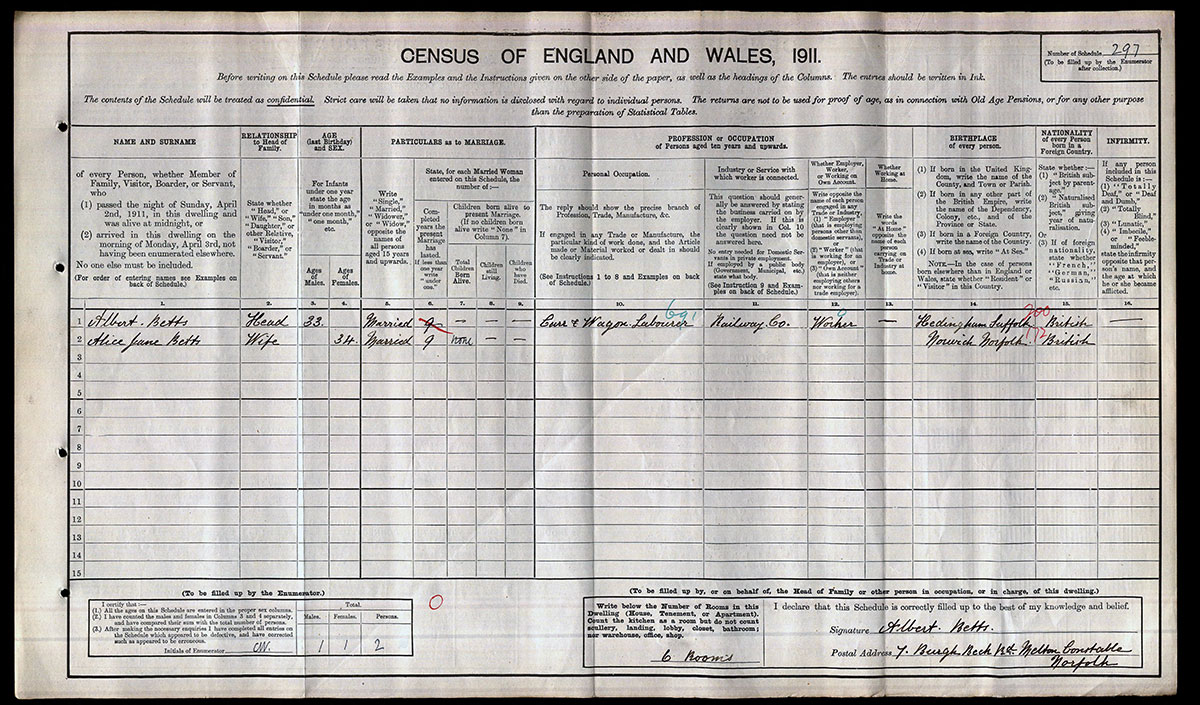 CENSUS OF ENGLAND AND WALES, 1911.
Number of Schedule 297
(To be filled up by the Enumerator
after collection.)
Before writing on this Schedule please read the Examples and the Instructions given on the other side of the paper, as well as the headings of the Columns. The entries should be written in Ink.
The contents of the Schedule will be treated as confidential. Strict care will be taken that no information is disclosed with regard to individual persons. The returns are not to be used for proof of age, as in connection with Old Age Pensions, or for any other purpose
than the preparation of Statistical Tables.
NAME AND SURNAME
of every Person, whether Member of
Family, Visitor, Boarder, or Servant,
who
(1) passed the night of Sunday, April
2nd, 1911, in this dwelling and
was alive at midnight, or
(2) arrived in this dwelling on the
morning of Monday, April 3rd, not
having been enumerated elsewhere.
No one else must be included.
(For order of entering names see Examples on
back of Schedule.)
RELATIONSHIP
to Head of
Family.
State whether
"Head," or
"Wife," "Son,"
"Daughter," or
other Relative,
"Visitor,"
"Boarder," or
"Servant."
AGE
(last Birthday)
and SEX.
For Infants
under one year
state the age
in months as
"under one month,"
"one month,"
etc.
Ages
of
Males.
Ages
of
Females.
PARTICULARS as to MARRIAGE.
Write
"Single,"
"Married,"
"Widower,"
or "Widow,"
opposite the
names of
all persons
aged 15 years
and upwards.
State, for each Married Woman
entered on this Schedule, the
number of:—
Com-
pleted
years the
present
Marriage
has
lasted.
If less than
one year
write
"under
one."
Children born alive to
present Marriage.
(If no children born
alive write "None" in
Column 7).
Total
Children
Born
Alive.
Children
still
Living.
Children
who
have
Died.
PROFESSION or OCCUPATION
of Persons aged ten years and upwards.
Personal Occupation.
The reply should show the precise branch of
Profession, Trade, Manufacture, &c.
If engaged in any Trade or Manufacture, the
particular kind of work done, and the Article
made or Material worked or dealt in should
be clearly indicated.
(See Instructions 1 to 8 and Examples on back
of Schedule.)
Industry or Service with
which worker is connected.
This question should gener-
ally be answered by stating
the business carried on by
the employer. If this is
clearly shown in Col. 10
the question need not be
answered here.
No entry needed for Domestic Ser-
vants in private employment.
If employed by a public body
(Government, Municipal, etc.)
state what body.
(See Instruction 9 and Exam-
ples on back of Schedule.)
Whether Employer,
Worker,
or Working on
Own Account.
Write opposite the
name of each person
engaged in any
Trade or Industry,
(1) "Employer"
(that is employing
persons other than
domestic servants),
or
(2) "Worker" (that
is working for an
employer), or
(3) "Own Account"
(that is neither
employing others
nor working for a
trade employer).
Whether
Working at
Home.
Write the
words
"At Home"
opposite the
name of each
person
carrying on
Trade or
Industry at
home.
BIRTHPLACE
of every person.
(1) If born in the United King-
dom, write the name of the
County, and Town or Parish.
(2) If born in any other part of
the British Empire, write
the name of the Dependency,
Colony, etc., and of the
Province or State.
(3) If born in a Foreign Country,
write the name of the Country.
(4) If born at sea, write "At Sea."
NOTE.—In the case of persons
born elsewhere than in England or
Wales, state whether "Resident" or
"Visitor" in this Country.
NATIONALITY
of every Person
born in a
Foreign Country.
State whether:—
(1) "British sub-
ject by parent-
age,"
(2) "Naturalised
British sub-
ject," giving
year of natu-
ralisation.
Or
(3) If of foreign
nationality,
state whether
"French,"
"German,"
"Russian,"
etc.
INFIRMITY.
If any person
included in this
Schedule is:—
(1) "Totally
Deaf," or "Deaf
and Dumb,"
(2) "Totally
Blind,"
(3) "Lunatic,"
(4) "Imbecile,"
or "Feeble-
minded,"
state the infirmity
opposite that per-
son's name, and
the age at which
he or she became
afflicted.
1. 2. 3. 4. 5. 6. 7. 8. 9. 10. 11. 12. 13. 14. 15. 16.
691 0 200
1 Albert Betts Head 33 Married 9 — — — Carr & Wagon Labourer Railway Co. Worker — Hedingham Suffolk British
172
2 Alice Jane Betts Wife 34 Married 9 none — — Norwich Norfolk British
3
4
5
6
7
8
9
10
11
12
13
14
15
(To be filled up by the Enumerator.)
I certify that:—
(1.) All the ages on this Schedule are entered in the proper sex columns.
(2.) I have counted the males and females in Columns 3 and 4 separately,
and have compared their sum with the total number of persons.
(3.) After making the necessary enquiries I have completed all entries on
the Schedule which appeared to be defective, and have corrected
such as appeared to be erroneous.
Initials of Enumerator
Total.
Males. Females. Persons.
1 1 2
0
(To be filled up by, or on behalf of, the Head of Family or other person in occupation, or in charge, of this dwelling.)
Write below the Number of Rooms in this
Dwelling (House, Tenement, or Apartment).
Count the kitchen as a room but do not count
scullery, landing, lobby, closet, bathroom;
nor warehouse, office, shop.
6 Rooms
I declare that this Schedule is correctly filled up to the best of my knowledge and belief.
Signature Albert Betts.
Postal Address 7. Burgh Beck Rd. Melton Constable
Norfolk